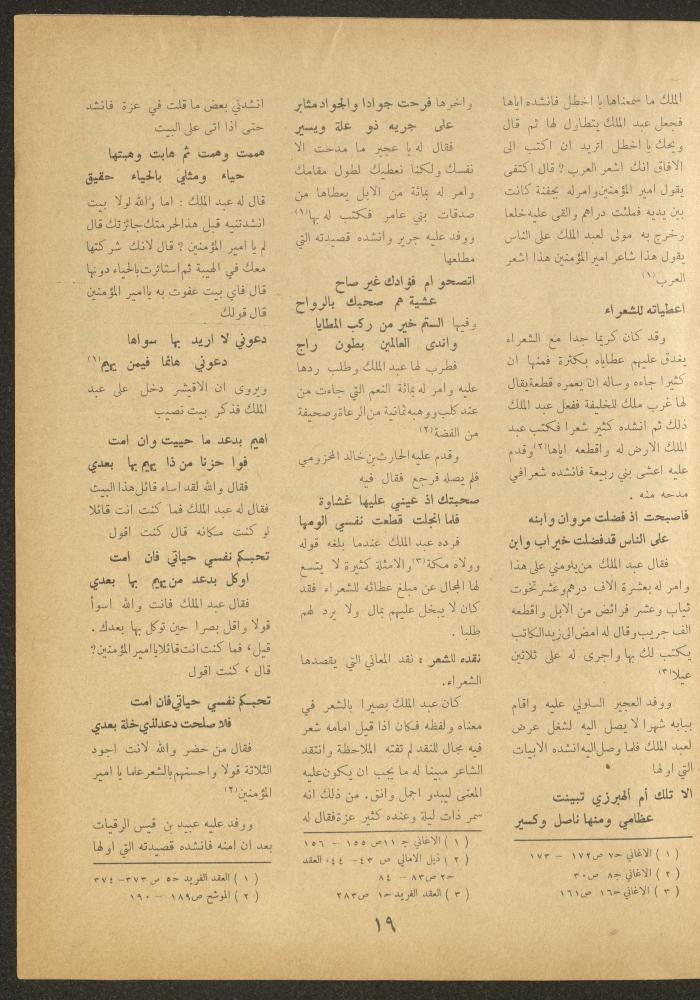 الملك ما سمعناها يا اخطل فانشده اياها
فجعل عبد الملك يتطاول لها ثم قال
ويحك يا اخطل اتريد ان اكتب الى
الافاق انك اشعر العرب ? قال اكتفى
بقول امير المؤمنين وامر له بجفنة كانت
بين يديه فملئت دراهم والقى عليه خلعا
وخرج به مولى لعبد الملك على الناس
يقول هذا شاعر امير المؤمنين هذا اشعر
العرب (١)
اعطياته للشعراء
وقد كان كريما جدا مع الشعراء
يغدق عليهم عطاياه بكثرة فمنها ان
كثيرا جاءه وساله ان يعمره قطعة يقال
لها غرب ملك للخليفة ففعل عبد الملك
ذلك ثم انشده كثير شعرا فكتب عبد
الملك الارض له واقطعه اياها (٢) وقدم
عليه اعشى بني ربيعة فانشده شعرا في
مدحه منه .
فاصبحت اذ فضلت مروان وابنه
على الناس قد فضلت خير اب وابن
فقال عبد الملك من يلومني على هذا
وامر له بعشرة الاف درهم وعشر تخوت
ثياب وعشر فرائض من الابل واقطعه
الف جريب وقال له امض الى زيد الكاتب
يكتب لك بها واجرى له على ثلاثين
عيلا (٣)
ووفد العجير السلولي عليه واقام
ببابه شهرا لا يصل اليه لشغل عرض
لعبد الملك فلما وصل اليه انشده الابيات
التي اولها
الا تلك أم الهبرزي تبينت
عظامي ومنها ناصل وكسير
( ١ ) الاغاني ح٧ ص١٧٢ – ١٧٣
( ٢ ) الاغاني ج٨ ص٣٠
( ٣ ) الاغاني ح١٦ ص١٦١
واخرها فرحت جوادا والجواد مثابر
على جريه ذو علة ويسير
فقال له يا عجير ما مدحت الا
نفسك ولكنا نعطيك لطول مقامك
وامر له بمائة من الابل يعطاها من
صدقات بني عامر فكتب له بها (١)
ووفد عليه جرير وانشده قصيدته التي
مطلعها
اتصحو ام فؤادك غير صاح
عشية هم صحبك بالرواح
وفيها الستم خير من ركب المطايا
واندى العالمين بطون راح
فطرب لها عبد الملك وطلب ردها
عليه وامر له بمائة النعم التي جاءت من
عند كلب ووهبه ثمانية من الرعاة وصحيفة
من الفضة (٢)
وقدم عليه الحارث بن خالد المخزومي
فلم يصله فرجع فقال فيه
صحبتك اذ عيني عليها غشاوة
فلما انجلت قطعت نفسي الومها
فرده عبد الملك عندما بلغه قوله
وولاه مكة (٣) والامثلة كثيرة لا يتسع
لها المجال عن مبلغ عطائه للشعراء فقد
كان لا يبخل عليهم بمال ولا يرد لهم
طلبا .
نقده للشعر : نقد المعاني التي يقصدها
الشعراء.
كان عبد الملك بصيرا بالشعر في
معناه ولفظه فكان اذا قيل امامه شعر
فيه مجال للنقد لم تفته الملاحظة وانتقد
الشاعر مبينا له ما يجب ان يكون عليه
المعنى ليبدو اجمل وانق. من ذلك انه
سمر ذات ليلة وعنده كثير عزة فقال له
( ١ ) الاغاني ج ١١ص ١٥٥ – ١٥٦
( ٢ ) ذيل الامالي ص ٤٣– ٤٤، العقد
ح٢ ص٨٣ – ٨٤
( ٣ ) العقد الفريد ح١ ص٢٨٣
انشدني بعض ما قلت في عزة فانشد
حتى اذا اتى على البيت
هممت وهمت ثم هابت وهبتها
حياء ومثلي بالحياء حقيق
قال له عبد الملك : اما والله لولا بيت
انشدتنيه قبل هذا لحرمتك جائزتك قال
لم يا امير المؤمنين ? قال لانك شركتها
معك في الهيبة ثم استاثرت بالحياء دونها
قال فاي بيت عفوت به يا امير المؤمنين
قال قولك
دعوني لا اريد بها سواها
دعوني هائما فيمن يهيم (١)
ويروى ان الاقيشر دخل على عبد
الملك فذكر بيت نصيب
اهيم بدعد ما حييت وان امت
فوا حزنا من ذا يهيم بها بعدي
فقال والله لقد اساء قائل هذا البيت
فقال له عبد الملك فما كنت انت قائلا
لو كنت مكانه قال كنت اقول
تحبكم نفسي حياتي فان امت
اوكل بدعد من يهيم بها بعدي
فقال عبد الملك فانت والله اسوأ
قولا واقل بصرا حين توكل بها بعدك .
قيل، فما كنت انت قائلا يا امير المؤمنين?
قال ، كنت اقول
تحبكم نفسي حياتي فان امت
فلا صلحت دعد لذي خلة بعدي
فقال من حضر والله لانت اجود
الثلاثة قولا واحسنهم بالشعر علما يا امير
المؤمنين (٢)
ووفد عليه عبيد بن قيس الرقيات
بعد ان امنه فانشده قصيدته التي اولها
( ١ ) العقد الفريد ح٥ ص ٣٧٣– ٣٧٤
( ٢ ) الموشح ص١٨٩ – ١٩٠
١٩